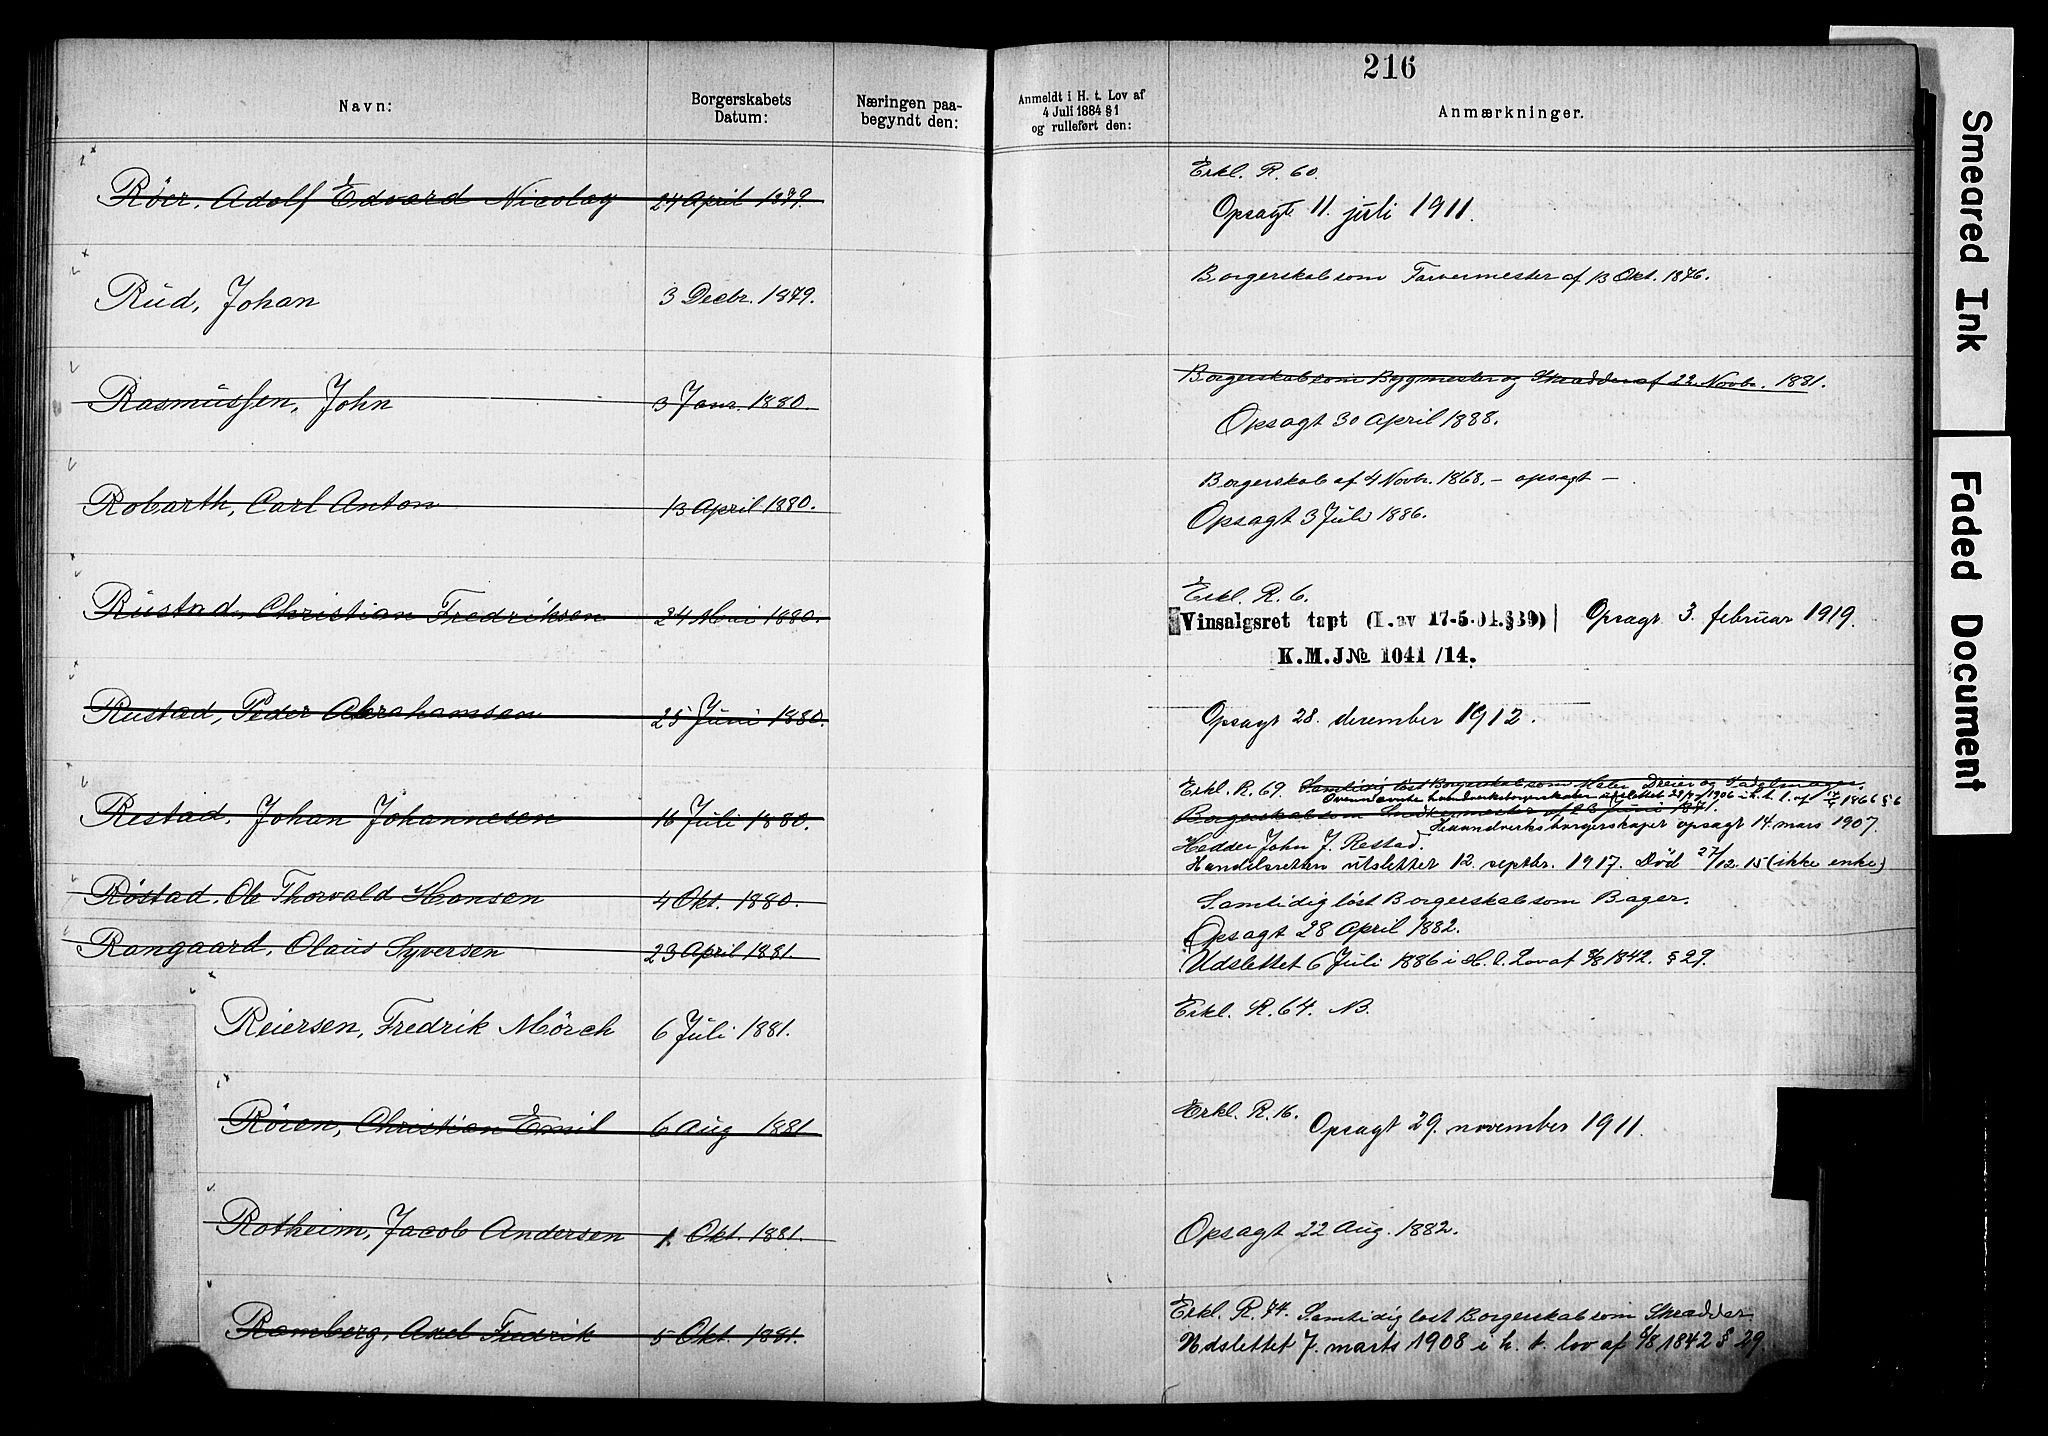 216
Navn:
Borgerskabets Datum:
Næringen paa-begyndt den:
Anmeldt i H. t. Lov af 4 Juli 1884 § 1 og rulleført den:
Anmærkninger.
Röer, Adolf Edvard Nicolay 24 April 1879.
Erkl. R. 60.
Opsagt 11. juli 1911.
Rud, Johan 3 Decbr. 1879.
Borgerskab som Farvermester af 13 Okt. 1876.
Rasmussen, John 3 Janr. 1880.
Borgerskab som Bygmester og Skrædder af 22 Novbr. 1881.
Opsagt 30 April 1888.
Robarth, Carl Anton 13 April 1880.
Borgerskab af 4 Novbr. 1868. - opsagt -
Opsagt 3 Juli 1886.
Rustad, Christian Fredriksen 24 Mai 1880.
Erkl. R. 6.
Vinsalgsret tapt (L. av 17-5-04. § 39) Opsagt 3. februar 1919.
K. M. J№ 1041 /14.
Rustad, Peder Abrahamsen 25 Juni 1880.
Opsagt 28. desember 1912.
Restad, Johan Johannesen 16 Juli 1880.
Erkl. R. 69. Samtidig löst Borgerskab som Maler, Dreier og
Ovennævnte haandverksborgerskaber udslettet 1906 i h. t. l. af 1866 § 6
Borgerskab som Snedkermester af
Haandverksborgerskapet opsagt 14. mars 1907.
Hedder John J. Restad.
Handelsretten utslettet 12. septbr. 1917. Död 27/12 15 (ikke enke)
Röstad, Ole Thorvald Hansen 4 Okt. 1880.
Samtidig löst Borgerskab som Bager.
Opsagt 28 April 1882.
Rangaard, Olaus Syversen 23 April 1881.
Udslettet 6 Juli 1886 i H. t. Lov af 8/8 1842. § 29.
Reiersen, Fredrik Mörch 6 Juli 1881.
Erkl. R. 64. NB.
Rören, Christian Emil 6 Aug 1881
Erkl. R. 16.
Opsagt 29. november 1911.
Rotheim, Jacob Andersen 1. Okt. 1881.
Opsagt 22 Aug. 1882.
Ramberg, Axel Fredrik 5 Okt. 1881.
Erkl. R. 74. Samtidig löst Borgerskab som Skrædder
Udslettet 7. marts 1908 i h. t. lov af 8/8 1842 § 29.
Smeared Ink
Faded Document